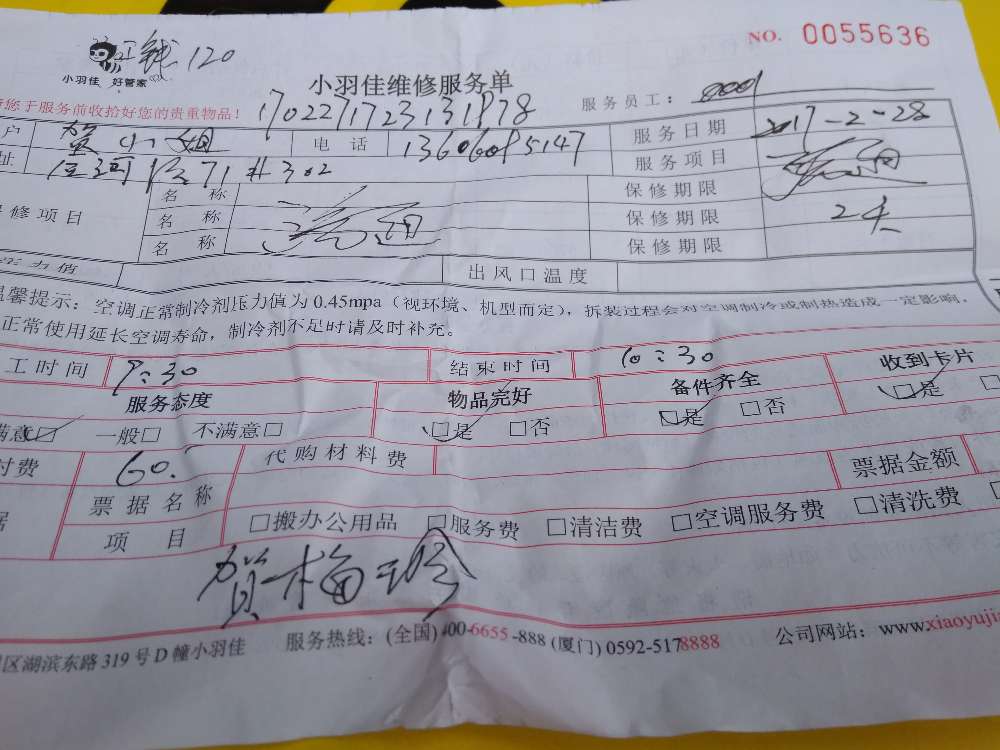 NO. 0055636
120
小羽佳 好管家
小羽佳维修服务单
您于服务前收拾好您的贵重物品！
17022717231311978
服务员工：
户 贺小姐 电话 13606085147 服务日期 2017-2-28
址 71#302 服务项目
修项目 名称 保修期限
名称 保修期限 2天
名称 保修期限
力值 出风口温度
温馨提示：空调正常制冷剂压力值为0.45mpa（视环境、机型而定），拆装过程会对空调制冷或制热造成一定影响，
正常使用延长空调寿命，制冷剂不足时请及时补充。
工时间 9:30 结束时间 10:30
服务态度 物品完好 备件齐全 收到卡片
满意☑ 一般□ 不满意□ ☑是 □否 ☑是 □否 ☑是 □
付费 60. 代购材料费 票据金额
据 票据名称
项目 □搬办公用品 □服务费 □清洁费 □空调服务费 □清洗费
贺梅珍
区湖滨东路319号D幢小羽佳 服务热线：(全国)400-6655-888 (厦门)0592-5178888 公司网站：www.xiaoyujia